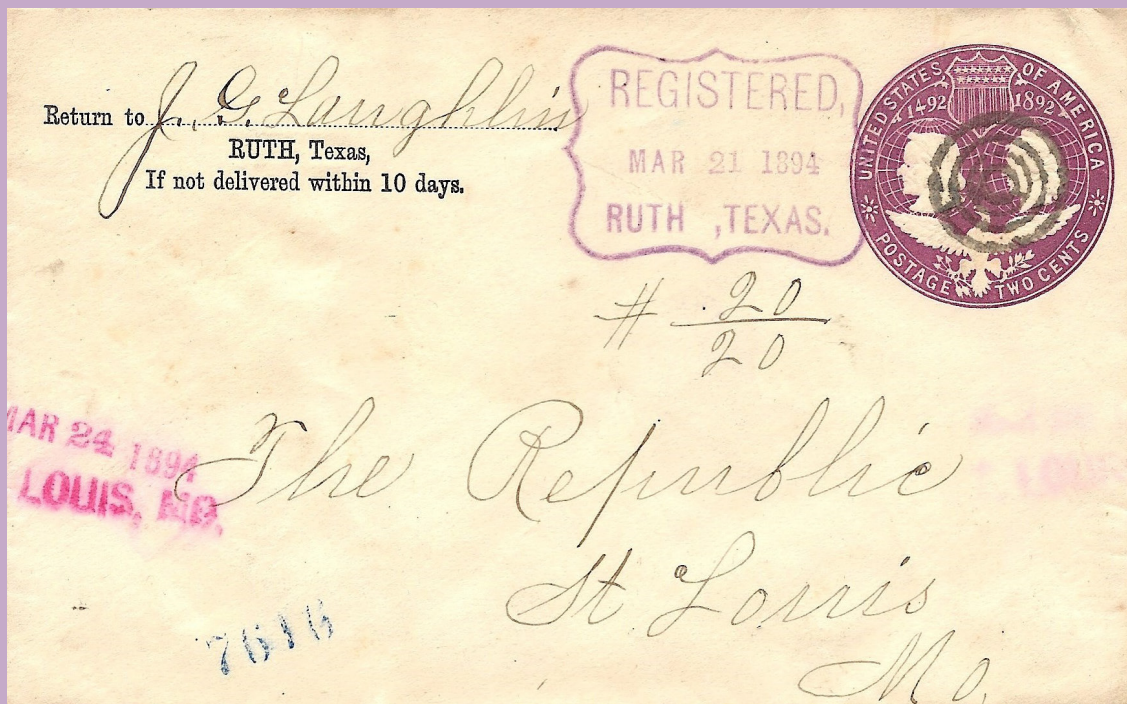 Return to J. G. Laughlin
RUTH, Texas,
If not delivered within 10 days.
REGISTERED,
MAR 21 1894
RUTH , TEXAS.
UNITED STATES OF AMERICA
1492 1892
POSTAGE TWO CENTS
# 20
20
MAR 24 1894
LOUIS, MO.
The Republic
St Louis
Mo.